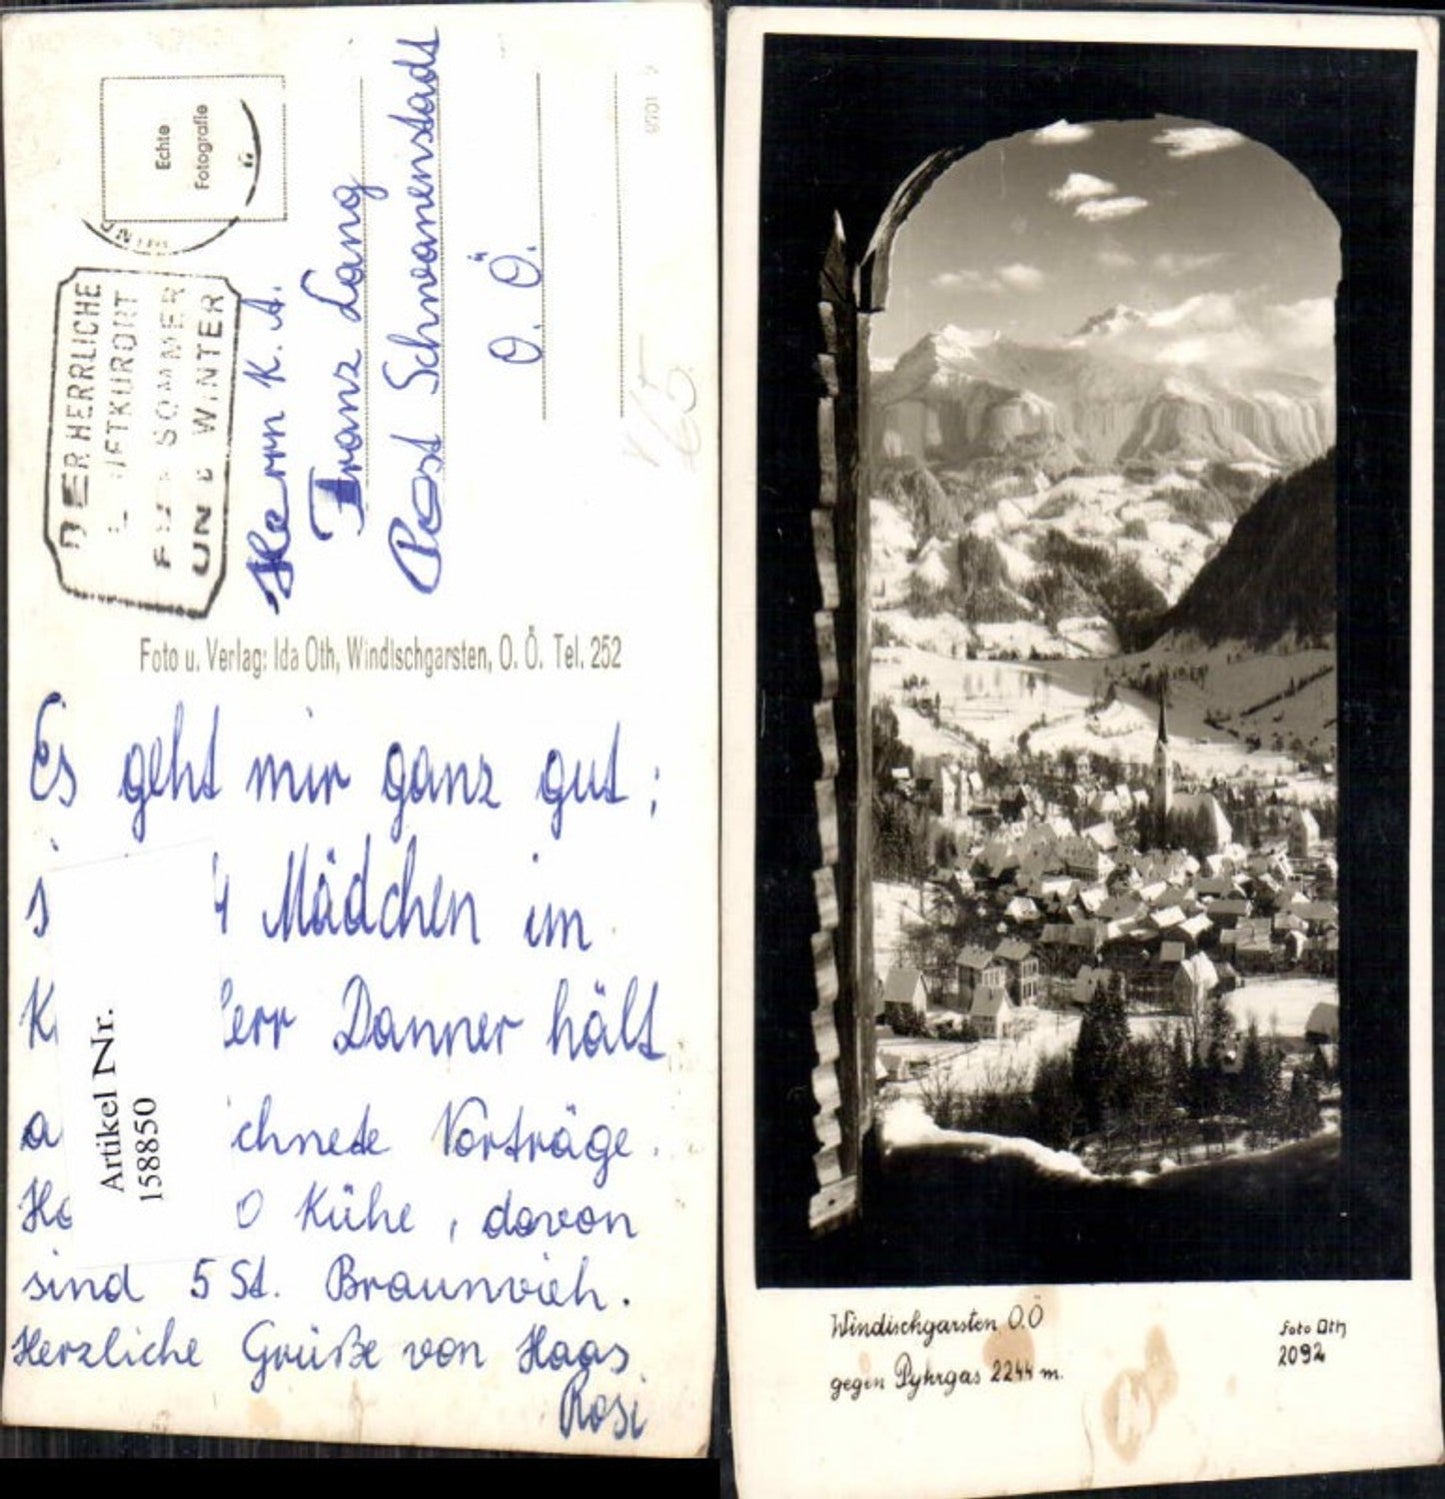 Echte
Fotografie
DER HERRLICHE
LUFTKURORT
FÜR SOMMER
UND WINTER
Herrn K. A.
Franz Lang
Post Schwanenstadt
O. Ö.
Foto u. Verlag: Ida Oth, Windischgarsten, O. Ö. Tel. 252
Es geht mir ganz gut;
4 Mädchen im
Danner hält
Vorträge.
Kühe, davon
sind 5 St. Braunvieh.
Herzliche Grüße von Haas
Rosi
Artikel Nr.
158850
Windischgarsten O.Ö
gegen Pyhrgas 2244 m.
Foto Oth
2092